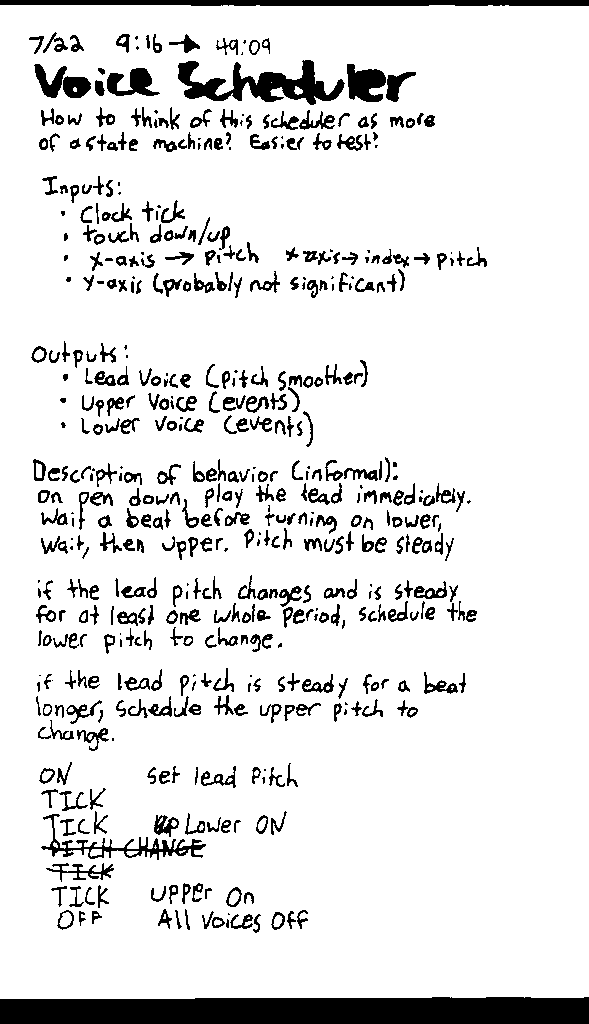 7/22 9:16 → 49:09
Voice Scheduler
How to think of this scheduler as more
of a state machine? Easier to test?
Inputs:
• Clock tick
• touch down/up
• X-axis → pitch x-axis → index → pitch
• Y-axis (probably not significant)
Outputs:
• Lead Voice (pitch smoother)
• Upper Voice (events)
• Lower Voice (events)
Description of behavior (informal):
On pen down, play the lead immediately.
Wait a beat before turning on lower,
Wait, then upper. Pitch must be steady
if the lead pitch changes and is steady
for at least one whole period, schedule the
lower pitch to change.
if the lead pitch is steady for a beat
longer, schedule the upper pitch to
change.
ON set lead Pitch
TICK
TICK Lower ON
PITCH CHANGE
TICK
TICK UPPER On
OFF All Voices Off